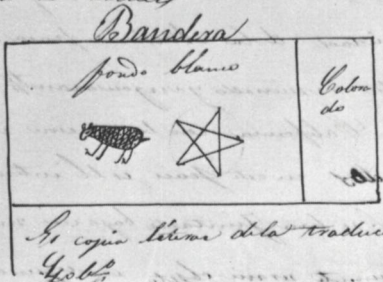 Bandera
fondo blanco
Colora
do
Es copia literal de la traduc
Gobº